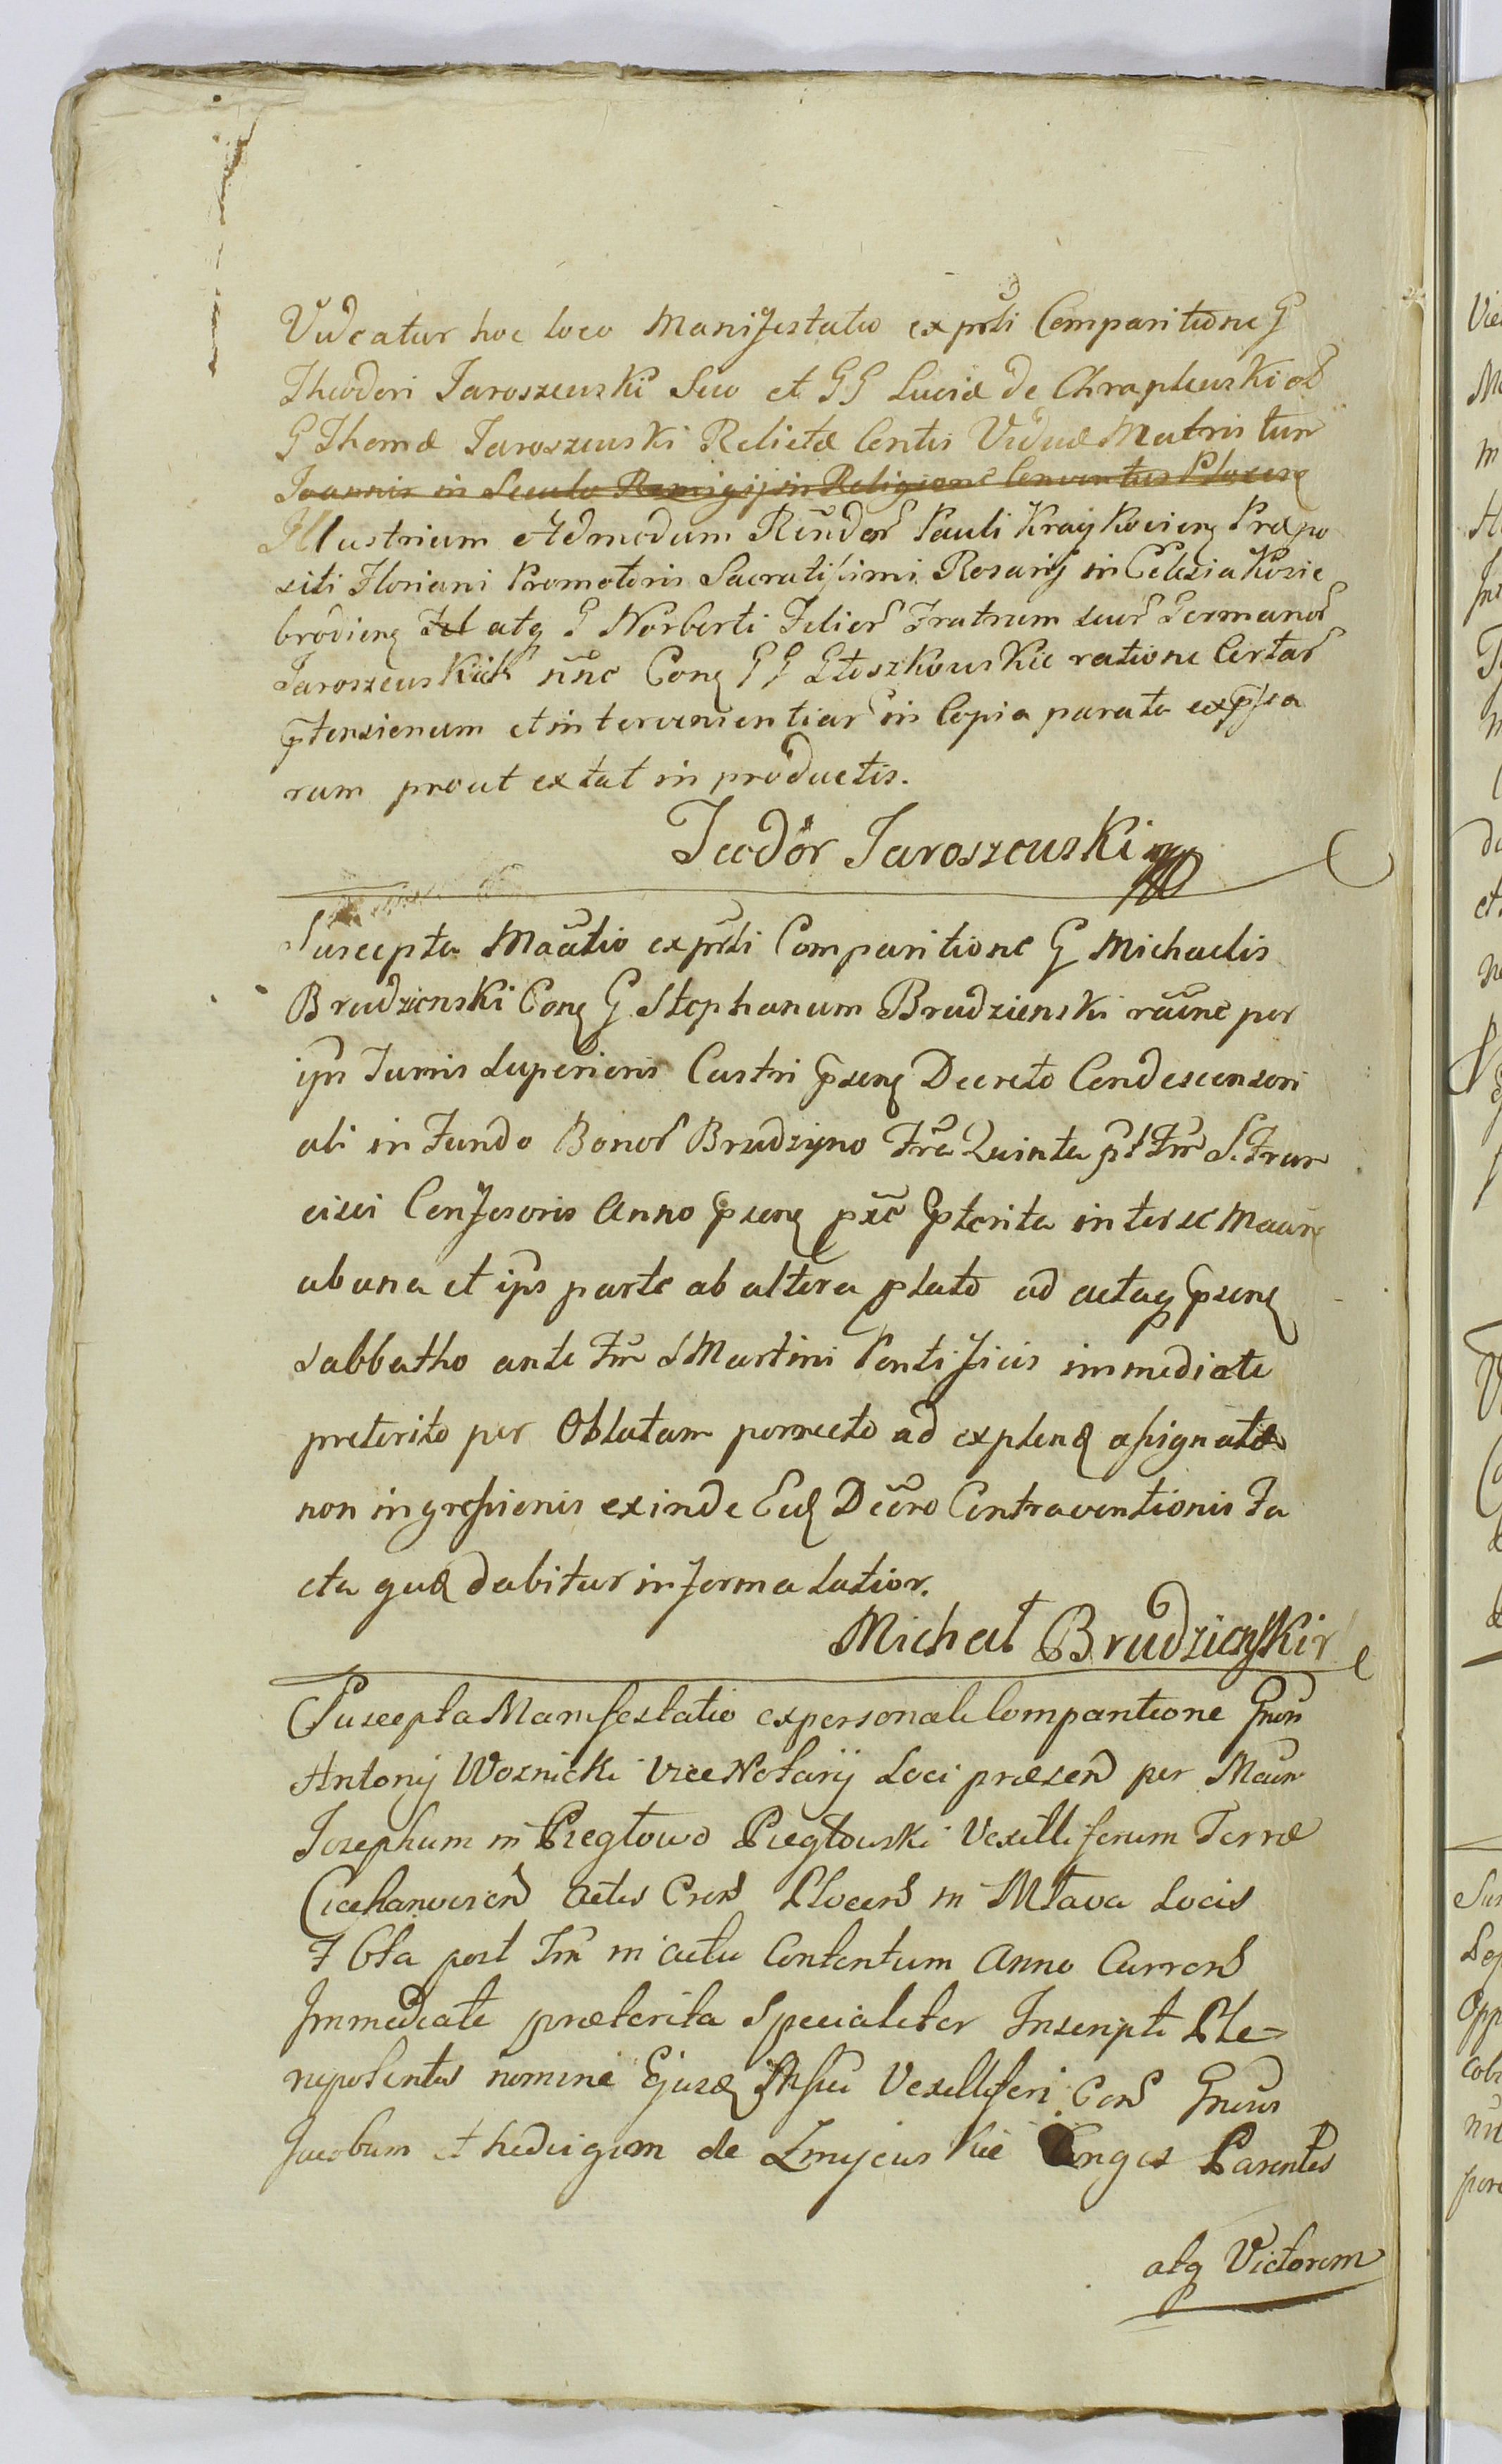 Videatur hoc loco Manifestatio ex prsli Comparitione G
Theodori Jaroszewski Suo et GG Luciæ de Chraplewski ol
G Thomæ Jaroszewski Relictæ Contis Viduæ Matris tum
Joannis in Seculo Remigij in Religione Conventus Plocens
Illustrium et Admodum Rndor Pauli Kraykoviens Præpo
siti Floriani Promotoris Sacratissimi Rosarij in Ecclesia Kozie
brodiens Fil atq G Norberti Filior Fratrum suor Germanor
Jaroszewskich nnc Cong GG Głoszkowskie ratione Certar
ptensionum et intervenientiar in Copia parata expssa
rum prout extat in productis.
Teodor Jaroszewski mp
Suscepta Maatio ex prsli Comparitione G Michaelis
Brudzienski Cong G Stephanum Brudzienski raone per
ipm Tumis Superioris Castri psens Decreto Condescensori
ali in Fundo Bonor Brudzyno Fra Quinta pst Fm S. Fran
cisci Confesoris Anno psens pxe pterita inter se Maan
ab una et ipm parte ab altera plato ad actaq psens
Sabbatho ante Fm S Martini Pontificis immediate
preterito per Oblatam porrecto ad explend assignatæ
non ingressionis exinde Eid Decro Contraventionis Fa
cta quæ dabitur in forma latior.
Michał Brudzienski r
Suscepta Manifestatio ex personali Comparitione Gnosi
Antonij Woznicki Vice Notarij Loci præsen per Mcum
Josephum in Pzegłowo Piegłowski Vexilliferum Terræ
Ciechanoviens Actis Cren Plocens in Mława Locis
F 6ta post Fm in actu Contentum Anno Currens
Immediate præterita Specialiter Inscripti Ple=
nipotentis nomine Ejusd Vexilliferi Con Gnosos
Jacobum et Hedvigem de Zmyewskie Congs Parentes
atq Victorem